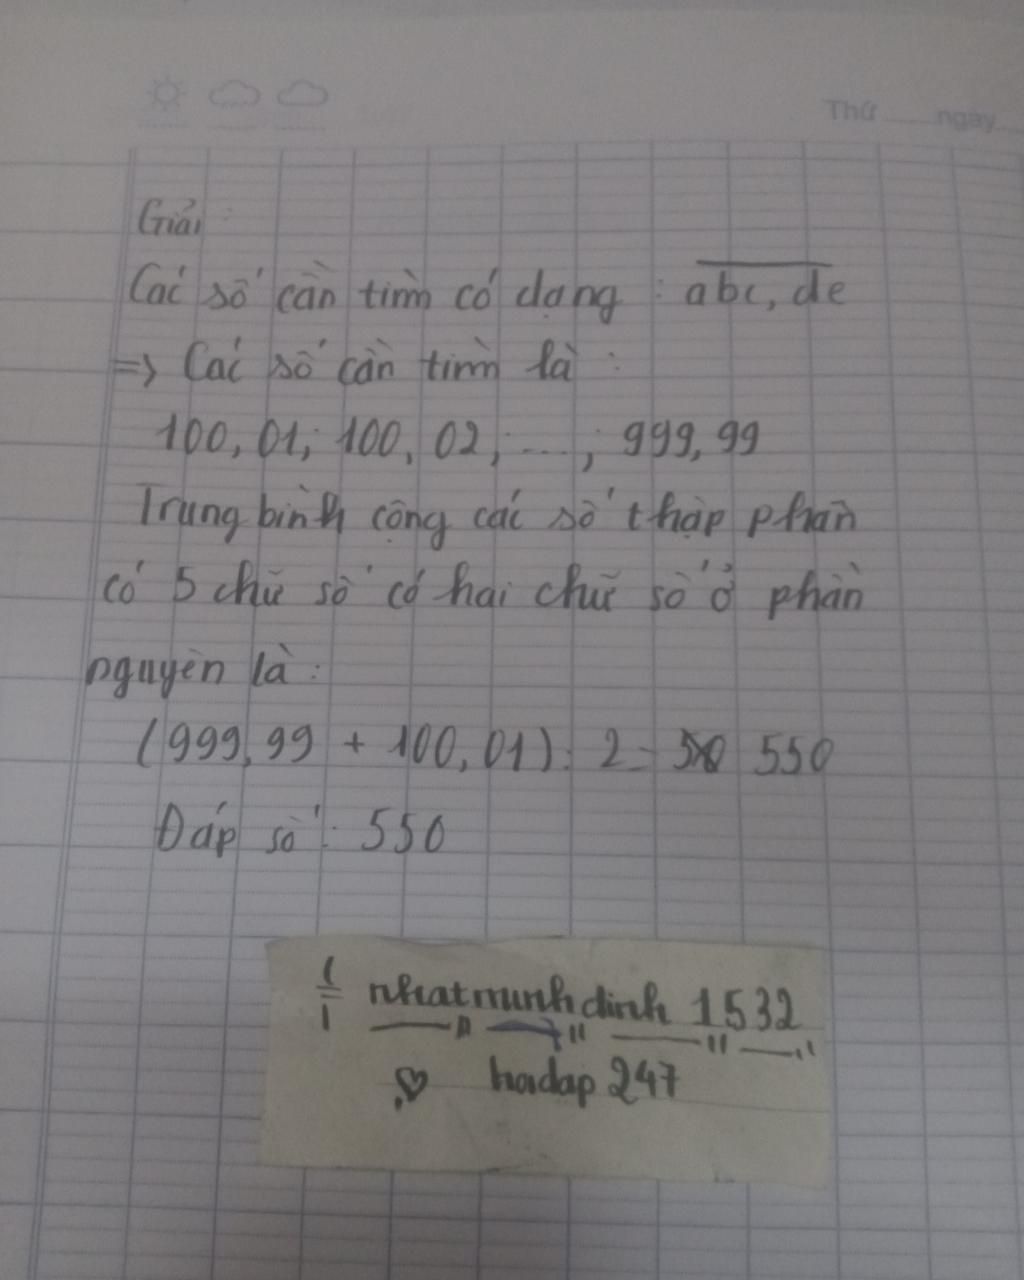 Thứ ngày
Giải:
Các số cần tìm có dạng : abc, de
=> Các số cần tìm là :
100, 01; 100, 02; ...; 999, 99
Trung bình cộng các số thập phân
có 5 chữ số có hai chữ số ở phần
nguyên là :
(999, 99 + 100, 01) : 2 = 550
Đáp số : 550
nhatminhdinh 1532
hoidap 247